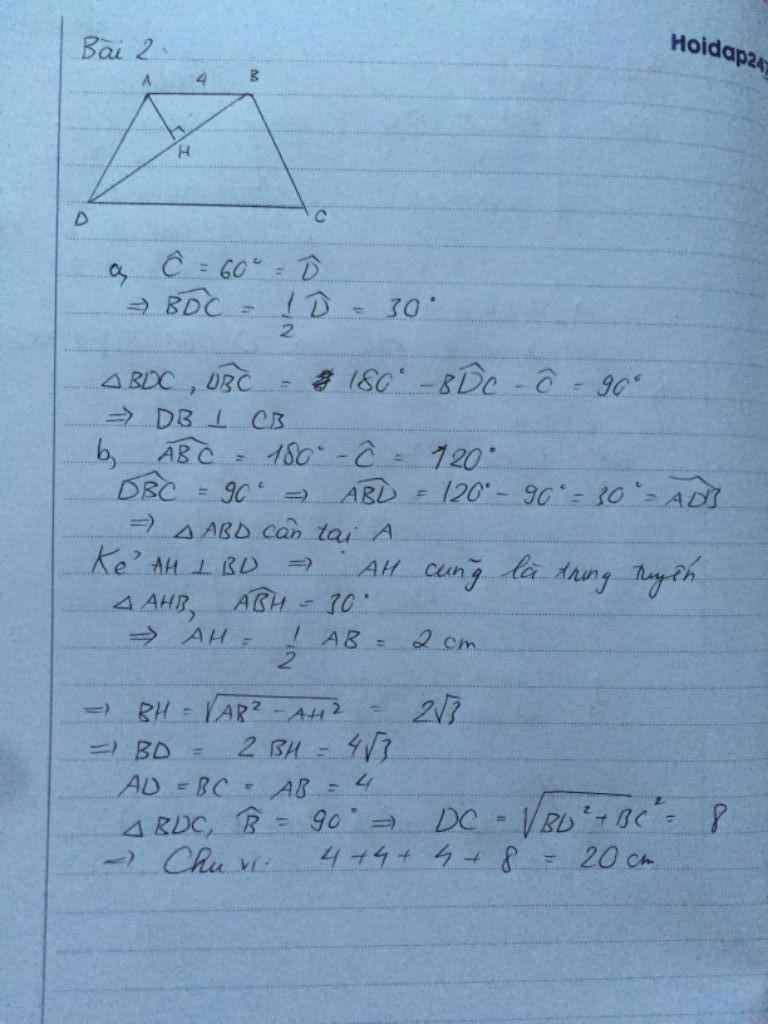 Hoidap247
Bài 2.
A 4 B
H
D C
a, Ĉ = 60° = D̂
⇒ BDC̑ = 1/2 D̂ = 30°
△BDC, DBC̑ = 180° - BDC̑ - Ĉ = 90°
⇒ DB ⊥ CB
b, ABC̑ = 180° - Ĉ = 120°
DBC̑ = 90° ⇒ ABD̑ = 120° - 90° = 30° = ADB̑
⇒ △ABD cân tại A
Kẻ AH ⊥ BD ⇒ AH cũng là trung tuyến
△AHB, ABH̑ = 30°
⇒ AH = 1/2 AB = 2 cm
⇒ BH = √(AB² - AH²) = 2√3
⇒ BD = 2 BH = 4√3
AD = BC = AB = 4
△BDC, B̂ = 90° ⇒ DC = √(BD² + BC²) = 8
⇒ Chu vi: 4 + 4 + 4 + 8 = 20 cm